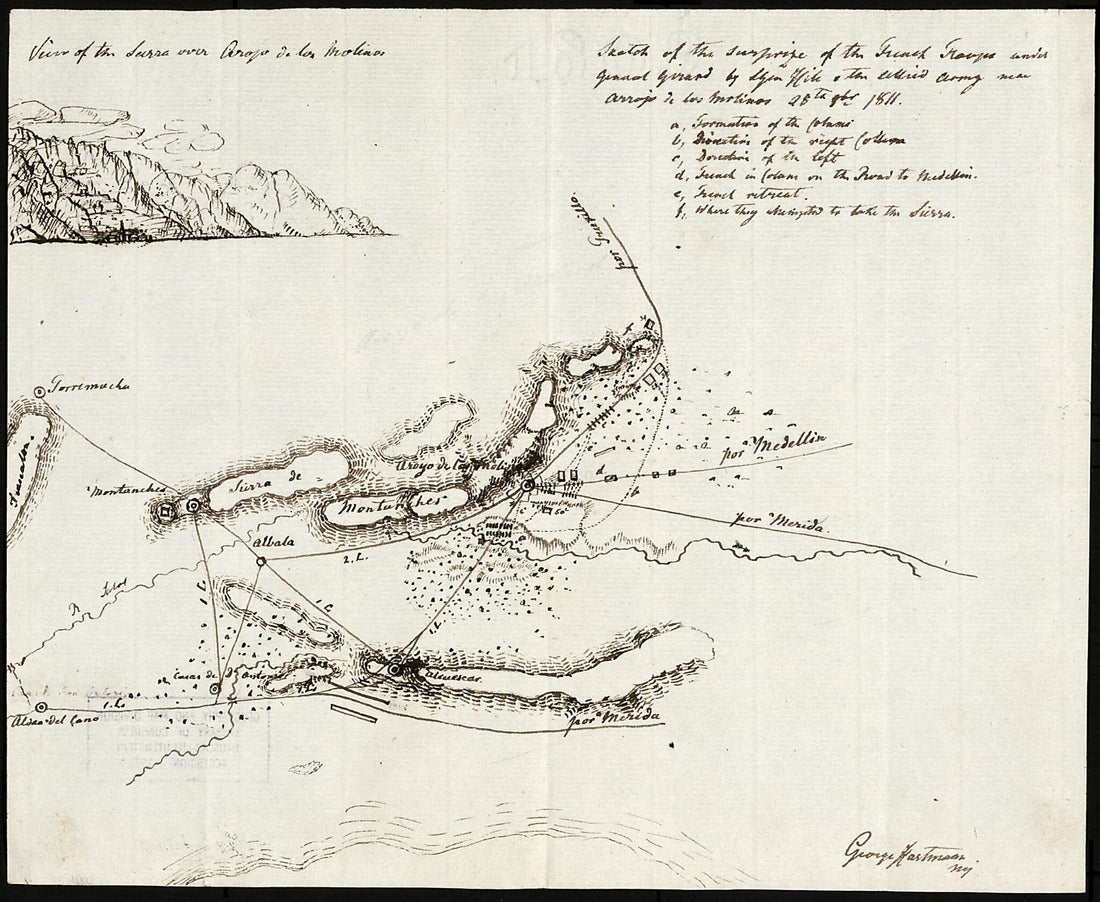 View of the Sierra over Aroyo de los Molinos
Sketch of the surprize of the French Troops under
General Girard by Lgen Hill & the allied army near
Arroyo de los Molinos 28th 8br 1811.
a, Formation of the Colums
b, Direction of the right Collum
c, Direction of the left
d, French in Colum on the Road to Medellin.
e, French retreat.
f, Where they attempted to take the Sierra.
por Trugillo
Torremocha
por a Medellin
Aroyo de los Molinos
Sierra de
Montanches
Montanche
por a Merida
Albala
2. L.
1 L.
1 L.
1 L.
R. Salor
Casas de Dn Antonio
Alcuescar
Aldea del Cano
1. L.
por a Merida
d
b
c
f
George Hartmann